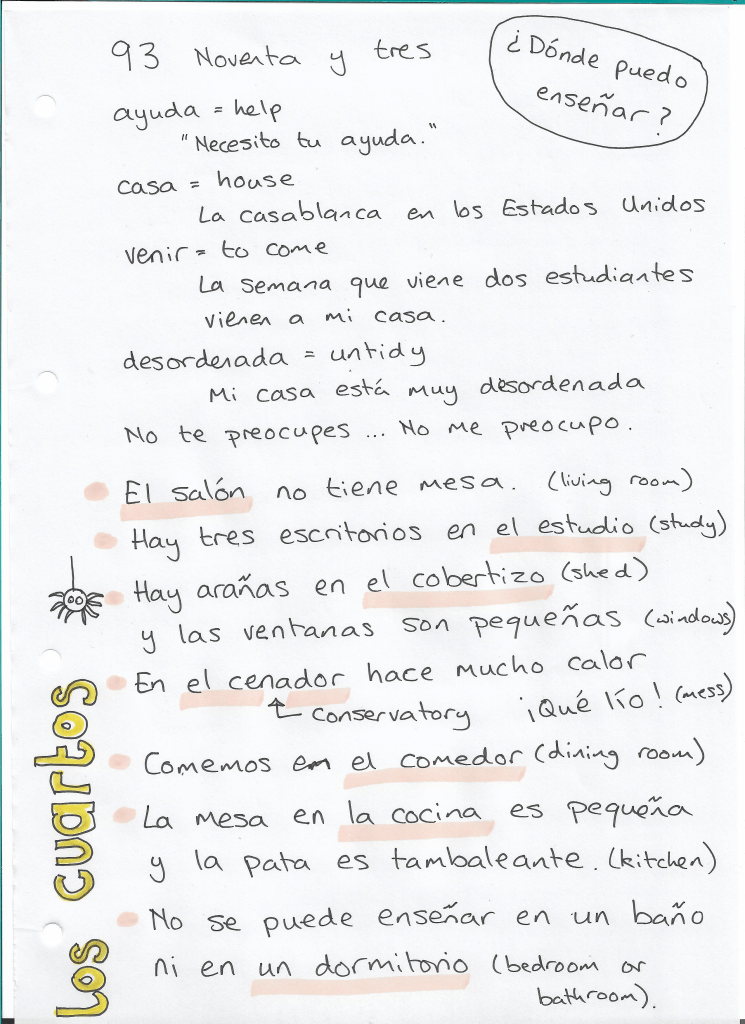 93 Noventa y tres
¿Dónde puedo
enseñar?
ayuda = help
"Necesito tu ayuda."
casa = house
La casablanca en los Estados Unidos
venir = to come
La semana que viene dos estudiantes
vienen a mi casa.
desordenada = untidy
Mi casa está muy desordenada
No te preocupes ... No me preocupo.
El salón no tiene mesa. (living room)
Hay tres escritorios en el estudio (study)
Hay arañas en el cobertizo (shed)
y las ventanas son pequeñas (windows)
En el cenador hace mucho calor
conservatory ¡Qué lío! (mess)
Comemos en el comedor (dining room)
La mesa en la cocina es pequeña
y la pata es tambaleante. (kitchen)
No se puede enseñar en un baño
ni en un dormitorio (bedroom or
bathroom).
Los cuartos